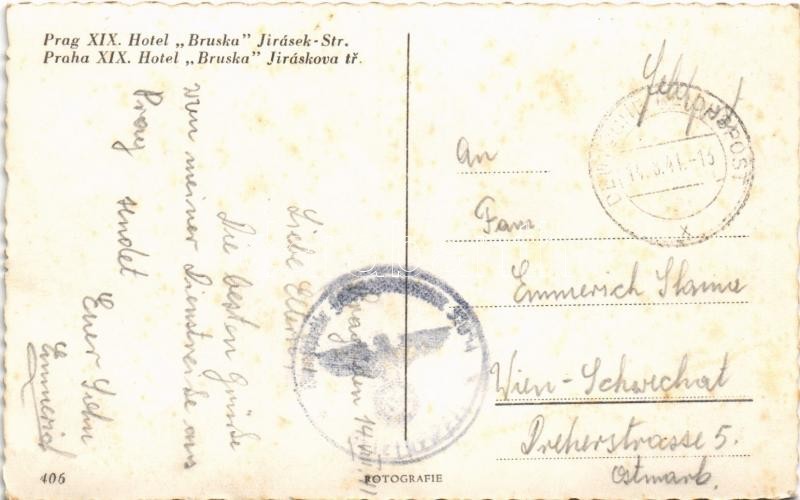 Prag XIX. Hotel „Bruska" Jirásek-Str.
Praha XIX. Hotel „Bruska" Jiráskova tř.
Prag den 14.VIII.41
Liebe Eltern
Die besten Grüße
von meiner Dienstreise aus
Prag sendet
Euer Sohn
Emmerich
Feldpost
DEUTSCHE REICHSPOST
14.8.41.-13
x
An
Fam
Emmerich Slama
Wien-Schwechat
Dreherstrasse 5.
Ostmark.
406
ROTOGRAFIE